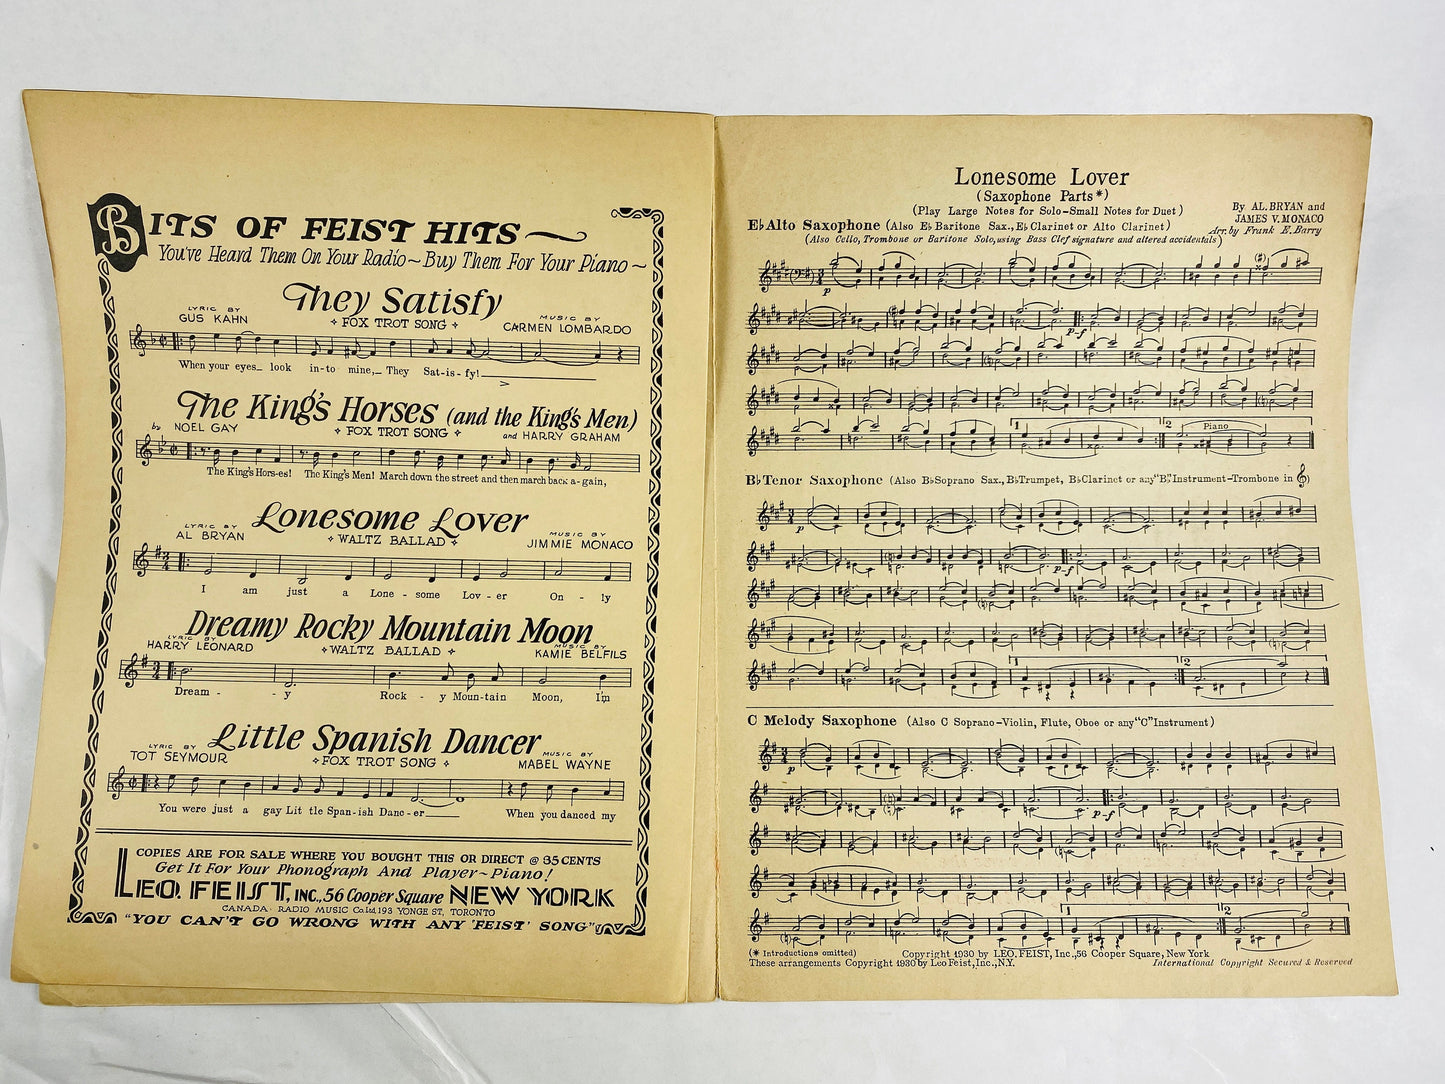 BITS OF FEIST HITS
You've Heard Them On Your Radio ~ Buy Them For Your Piano ~
They Satisfy
LYRIC BY
GUS KAHN
FOX TROT SONG
MUSIC BY
CARMEN LOMBARDO
When your eyes_ look in-to mine,_ They Sat-is-fy!
The King's Horses (and the King's Men)
by NOEL GAY
FOX TROT SONG
and HARRY GRAHAM
The King's Hors-es! The King's Men! March down the street and then march back a-gain,
Lonesome Lover
LYRIC BY
AL BRYAN
WALTZ BALLAD
MUSIC BY
JIMMIE MONACO
I am just a Lone - some Lov - er On - ly
Dreamy Rocky Mountain Moon
LYRIC BY
HARRY LEONARD
WALTZ BALLAD
MUSIC BY
KAMIE BELFILS
Dream - - y Rock - y Moun-tain Moon, I'm
Little Spanish Dancer
LYRIC BY
TOT SEYMOUR
FOX TROT SONG
MUSIC BY
MABEL WAYNE
You were just a gay Lit tle Span-ish Danc-er____ When you danced my
COPIES ARE FOR SALE WHERE YOU BOUGHT THIS OR DIRECT @ 35 CENTS
Get It For Your Phonograph And Player~Piano!
LEO. FEIST, INC., 56 Cooper Square NEW YORK
CANADA· RADIO MUSIC Co. Ltd. 193 YONGE ST, TORONTO
"YOU CAN'T GO WRONG WITH ANY 'FEIST' SONG"
Lonesome Lover
(Saxophone Parts*)
(Play Large Notes for Solo-Small Notes for Duet)
By AL. BRYAN and
JAMES V. MONACO
Arr. by Frank E. Barry
E♭ Alto Saxophone (Also E♭ Baritone Sax., E♭ Clarinet or Alto Clarinet)
(Also Cello, Trombone or Baritone Solo, using Bass Clef signature and altered accidentals)
p
p-f
1 2 Piano
B♭ Tenor Saxophone (Also B♭ Soprano Sax., B♭ Trumpet, B♭ Clarinet or any "B♭" Instrument-Trombone in 𝄞)
p
p-f
1 2
C Melody Saxophone (Also C Soprano-Violin, Flute, Oboe or any "C" Instrument)
p
p-f
1 2
(* Introductions omitted) Copyright 1930 by LEO. FEIST, Inc., 56 Cooper Square, New York
These arrangements Copyright 1930 by Leo Feist, Inc., N.Y. International Copyright Secured & Reserved